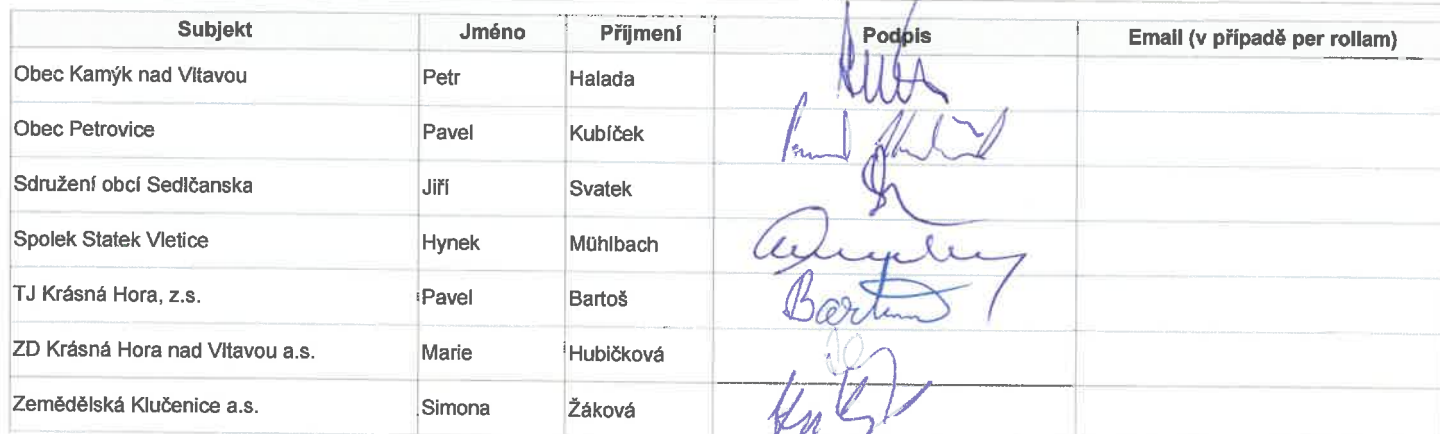 Subjekt Jméno Příjmení Podpis Email (v případě per rollam)
Obec Kamýk nad Vltavou Petr Halada
Obec Petrovice Pavel Kubíček
Sdružení obcí Sedlčanska Jiří Svatek
Spolek Statek Vletice Hynek Mühlbach
TJ Krásná Hora, z.s. Pavel Bartoš
ZD Krásná Hora nad Vltavou a.s. Marie Hubičková
Zemědělská Klučenice a.s. Simona Žáková